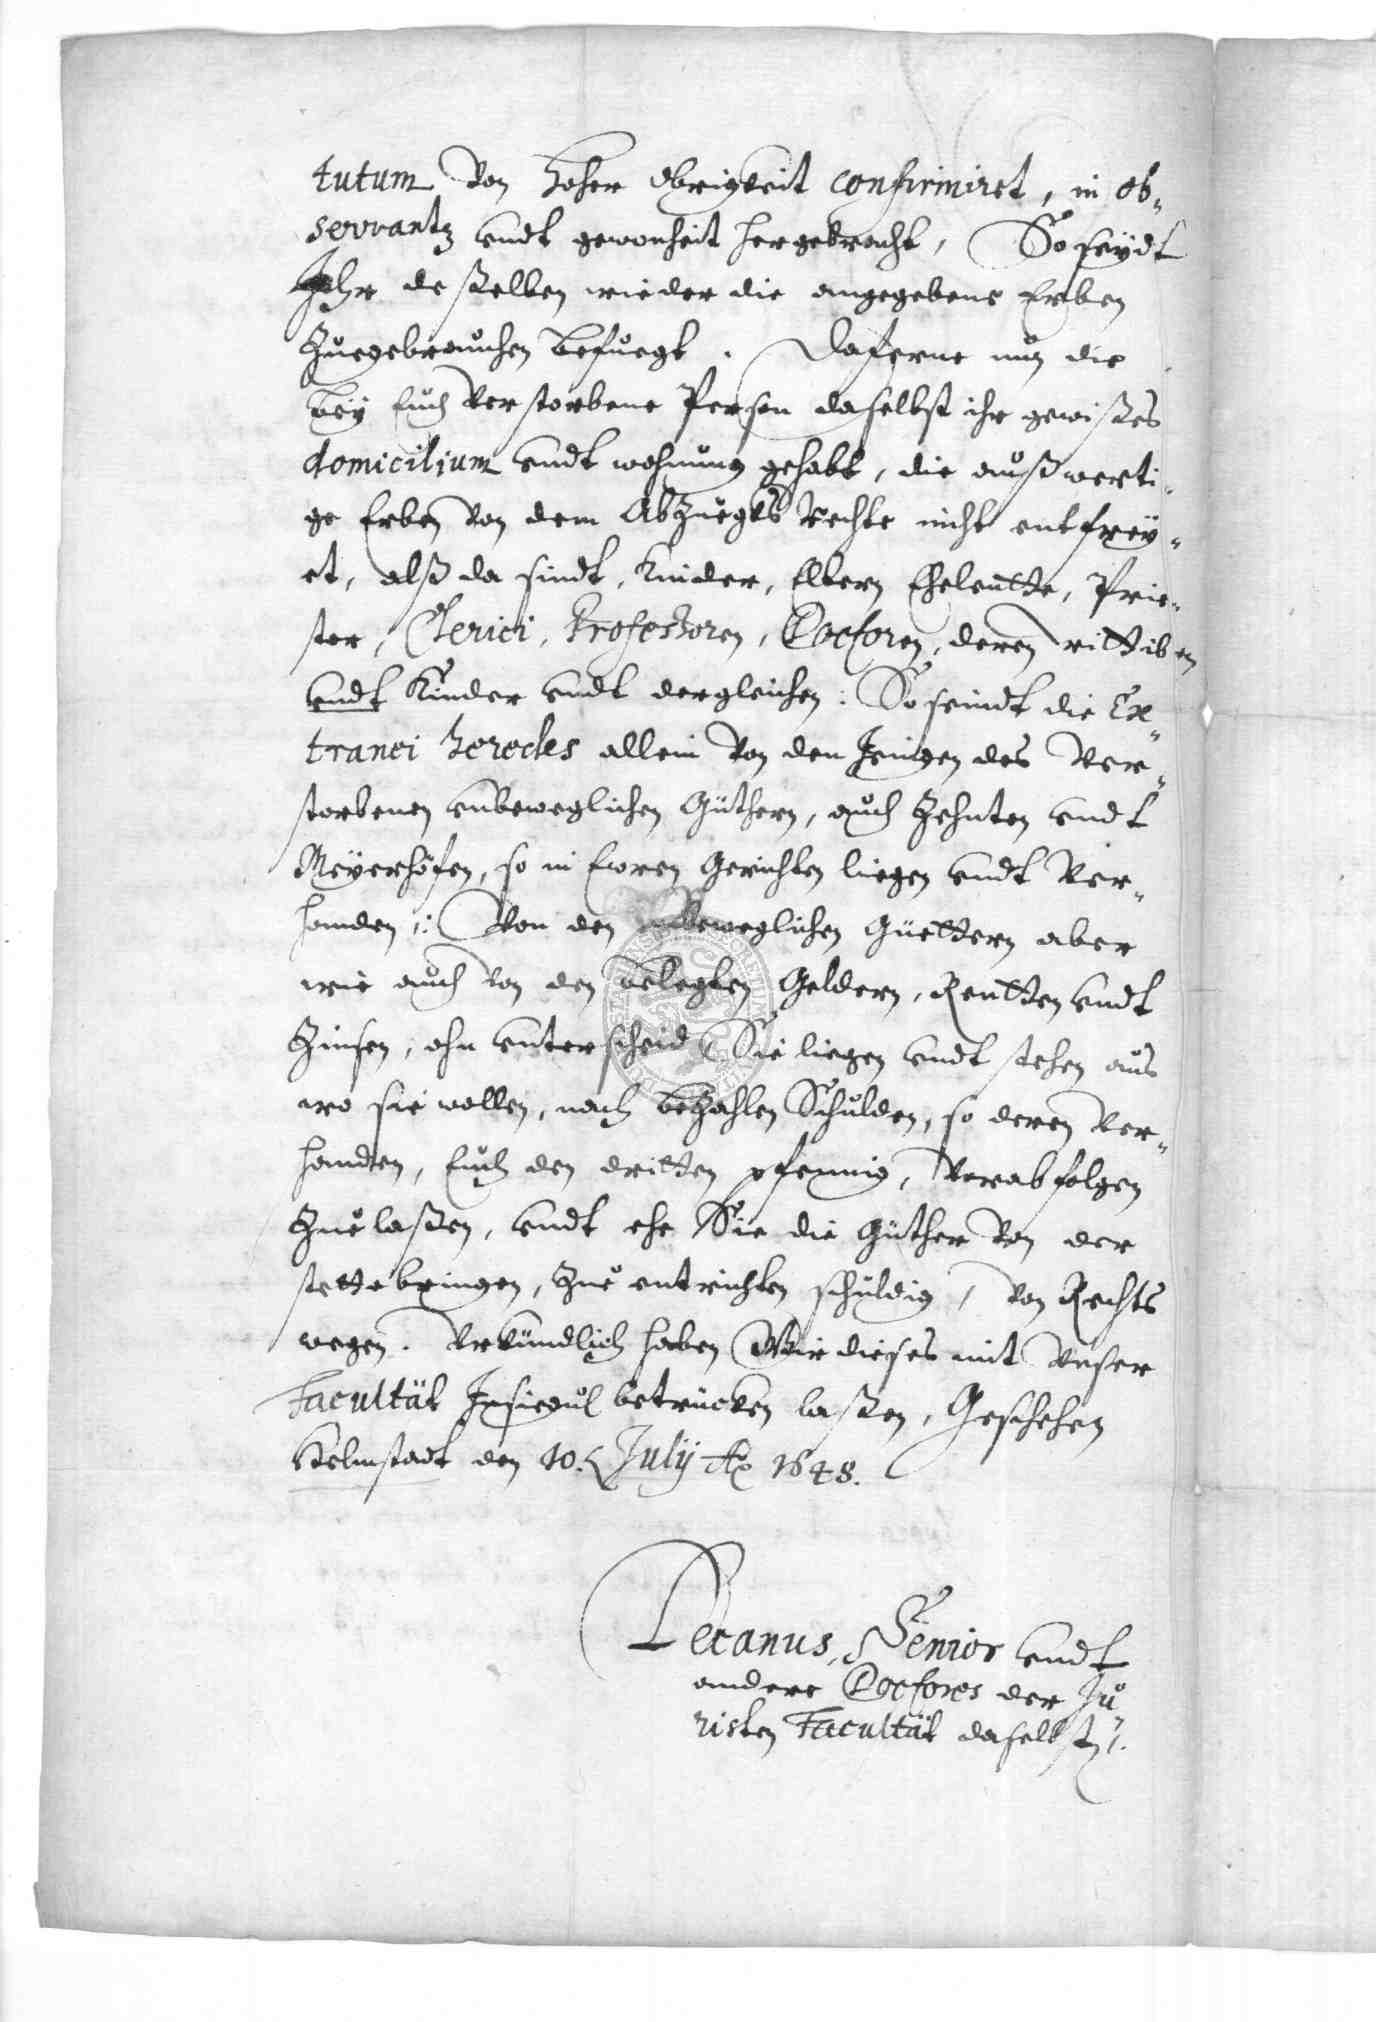 tutum von hoher Obrigkeit confirmiret, in ob-
servantz vndt gewonheit hergebracht, So seydt
Ihr deßelben wieder die angegebene Erben
Zuegebrauchen befuegt. Daferne nun die
bey Euch Verstorbene Person daselbst ihr gewißes
domicilium vndt wohnung gehabt, die außwerti-
ge Erben von dem Abzuegks Rechte nicht entfrey-
et, alß da sindt, Kinder, Eltern Eheleutte, Prie-
ster, Clerici, Professoren, Doctoren, deren
vndt Kinder vndt dergleichen: So seindt die Ex-
tranei heredes allein von den Jenigen des Ver-
storbenen vnbeweglichen Güthern, auch Zehnten vndt
Meyerhöfen, so in Ewren Gerichten liegen vndt Ver-
handen: Von den beweglichen Güettern aber
wie auch von den belegten Geldern, Rentten vndt
Zinsen, ohn vnterscheid Sie liegen vndt stehen aus
wo sie wollen, nach bezahlen Schulden, so deren Ver-
handen, Euch den dritten pfennig, Verabfolgen
Zue laßen, vndt ehe Sie die Güther von der
stette bringen, Zue entrichten schuldig, von Rechts
wegen. Vrkundlich haben Wir dieses mit Vnser
Facultät Insiegul betrucken laßen, Geschehen
Helmstadt den 10. July Ao 1648.
Decanus, Senior vndt
andere Doctores der Ju-
risten Facultät daselbst.